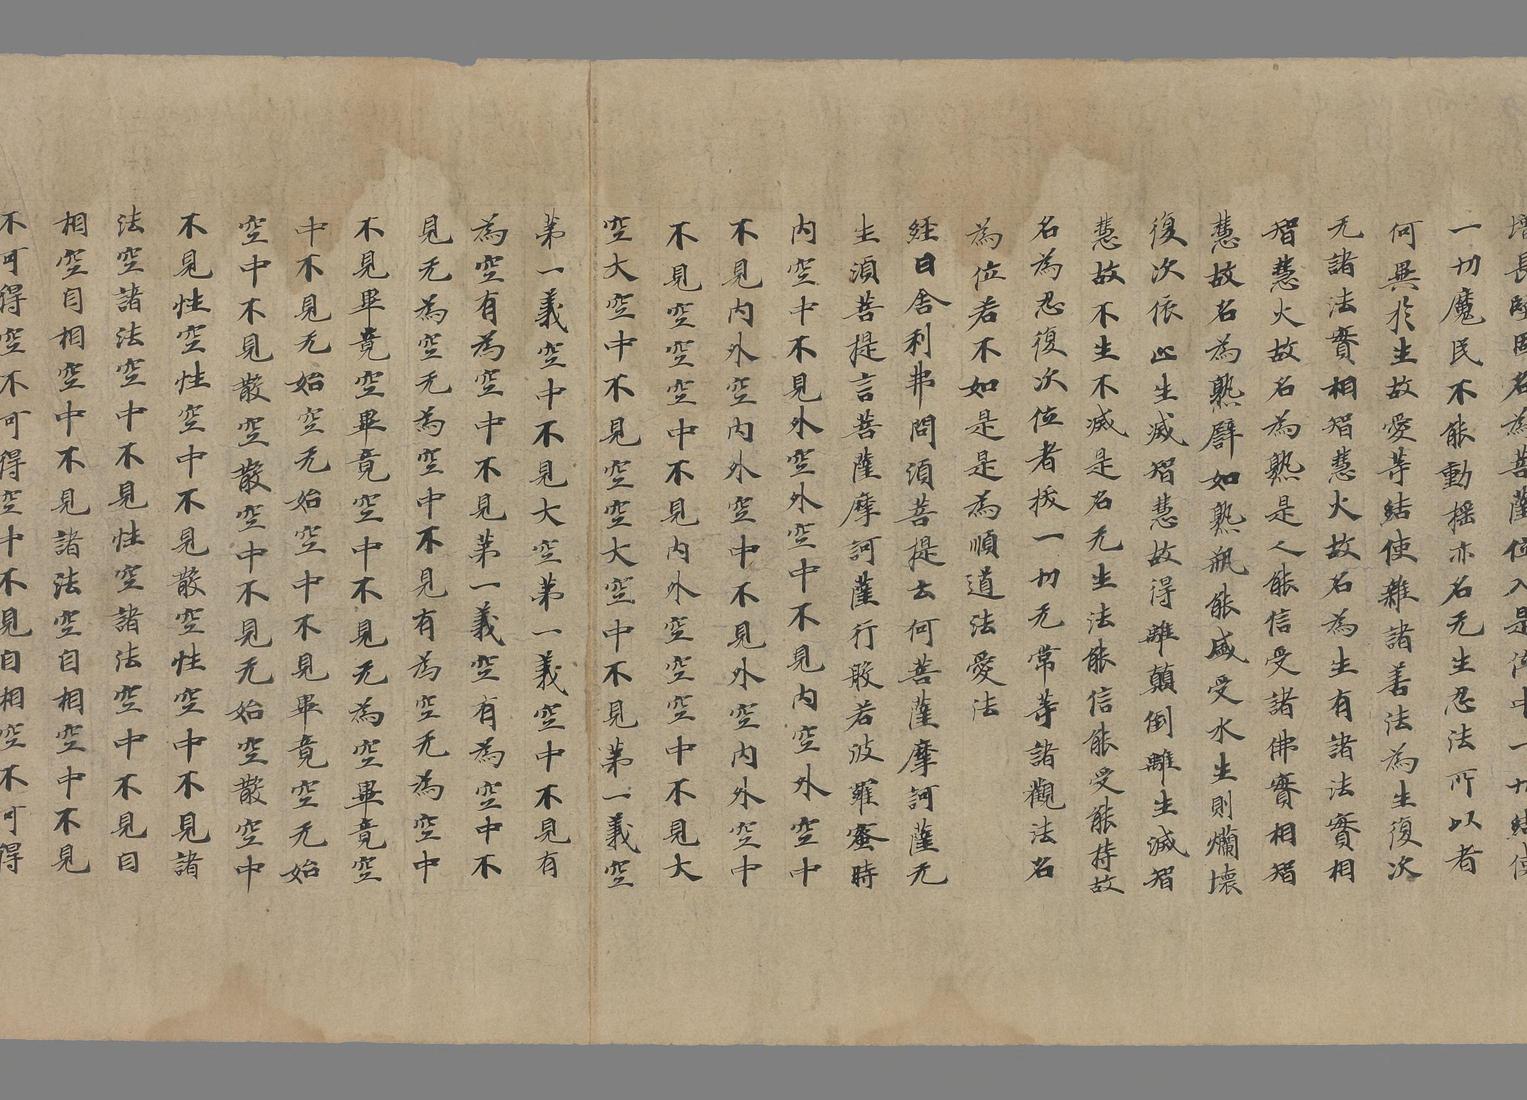 增長堅固名為菩薩位入是位中一切結使
一切魔民不能動搖亦名无生忍法所以者
何異於生故愛等結使雜諸善法為生復次
无諸法實相智慧火故名為生有諸法實相
智慧火故名為熟是人能信受諸佛實相智
慧故名為熟譬如熟瓶能盛受水生則爛壞
復次依止生滅智慧故得離顛倒離生滅智
慧故不生不滅是名无生法能信能受能持故
名為忍復次位者拔一切无常等諸觀法名
為位若不如是是為順道法愛法
經曰舍利弗問須菩提云何菩薩摩訶薩无
生須菩提言菩薩摩訶薩行般若波羅蜜時
內空中不見外空外空中不見內空外空中
不見內外空內外空中不見外空內外空中
不見空空空空中不見內外空空空中不見大
空大空中不見空空大空中不見第一義空
第一義空中不見大空第一義空中不見有
為空有為空中不見第一義空有為空中不
見无為空无為空中不見有為空无為空中
不見畢竟空畢竟空中不見无為空畢竟空
中不見无始空无始空中不見畢竟空无始
空中不見散空散空中不見无始空散空中
不見性空性空中不見散空性空中不見諸
法空諸法空中不見性空諸法空中不見自
相空自相空中不見諸法空自相空中不見
不可得空不可得空中不見自相空不可得